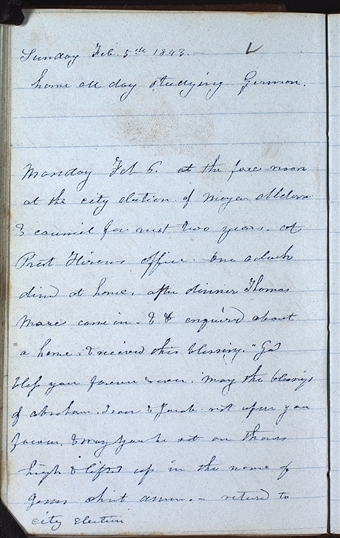 Sunday Feb. 5th 1843.
home all day studying German.
Monday Feb 6. at the fore noon
at the city election of Mayor Aldern
& council for next two years. at
Prest Hirums office. One oclock
dined at home. after dinner Thomas
More came in. & enquired about
a home. & received this blessing. "God
bless you forever & ever. may the blessings
of abraham. Isaac & Jacob rest upon you
forever. & may you be set on thrones
high & lifted up in the name of
Jesus christ amen. - returd to
city election